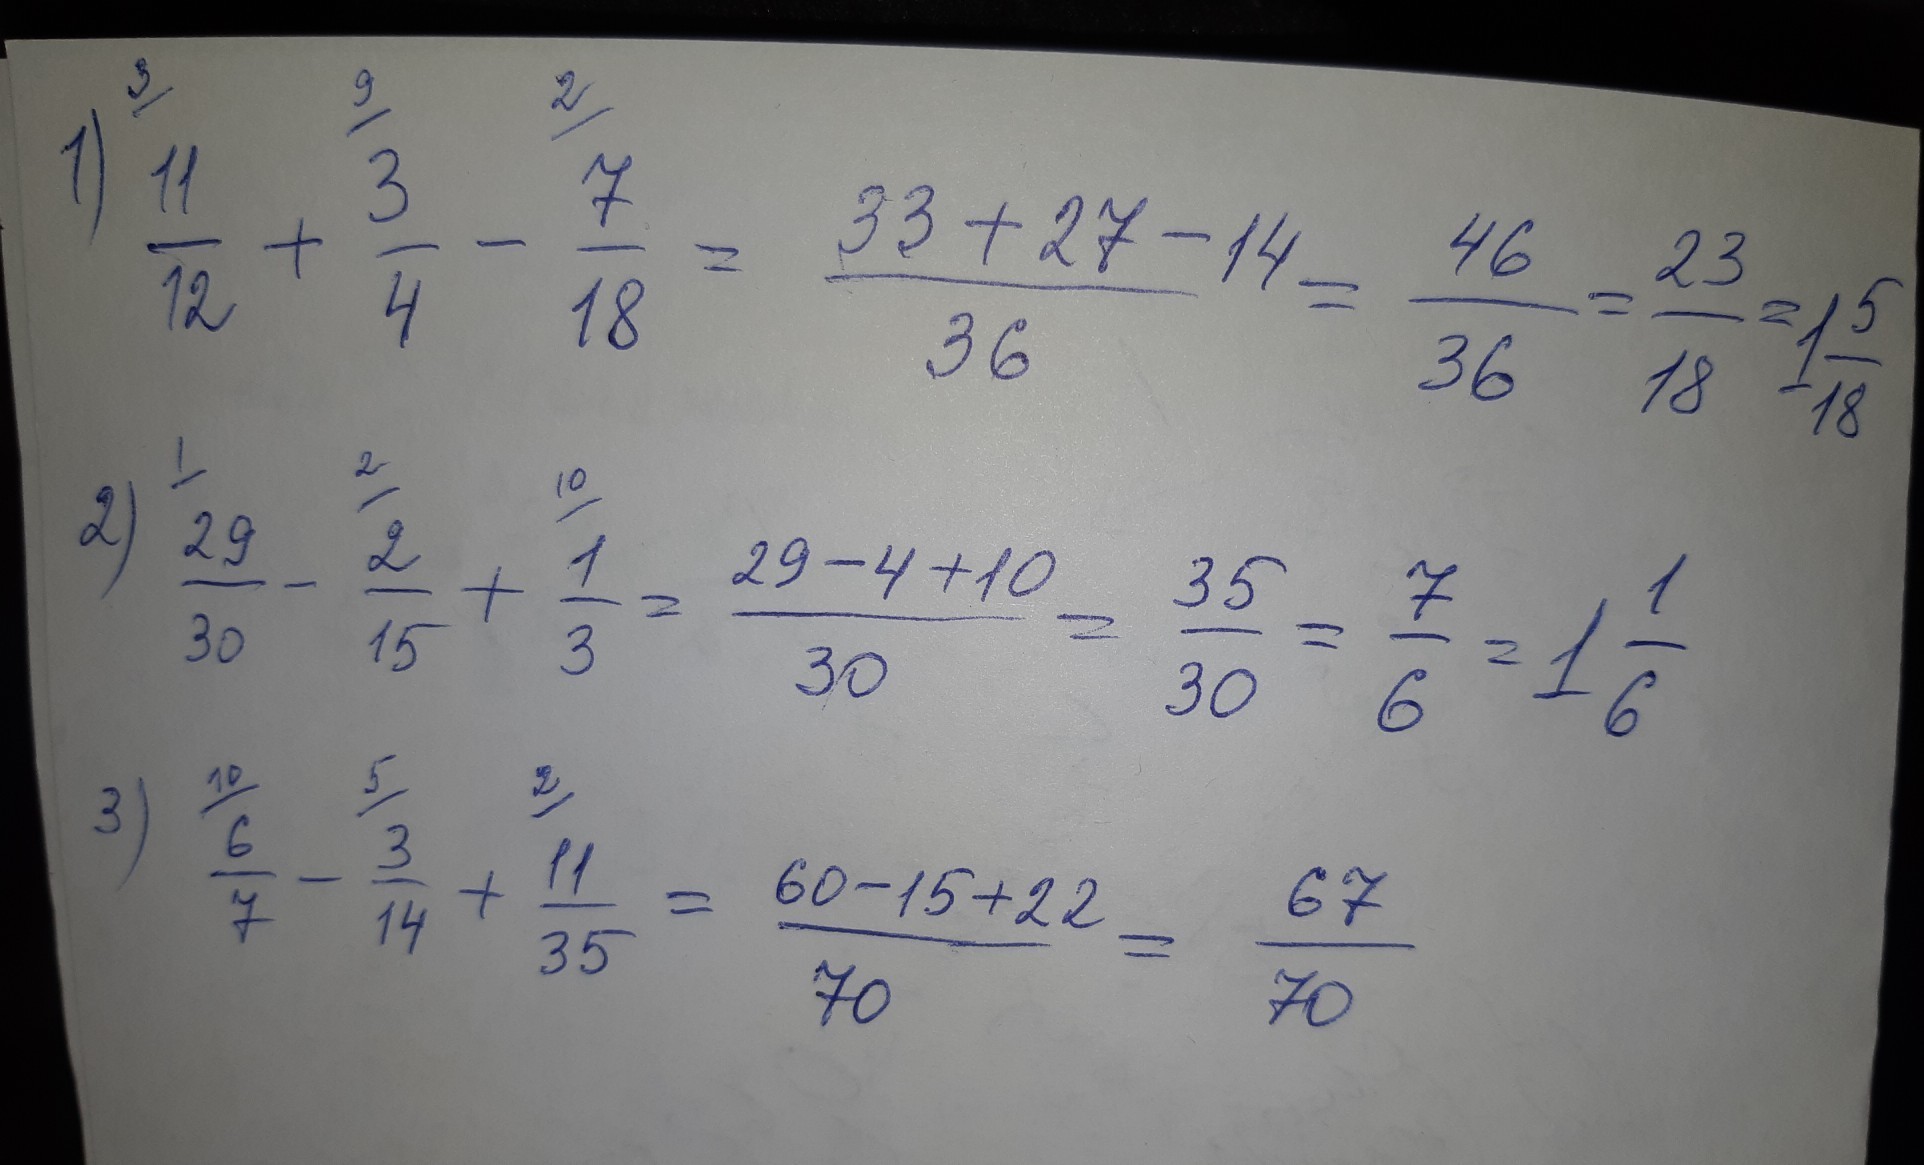 1) 3/ 11/12 + 9/ 3/4 - 2/ 7/18 = (33+27-14)/36 = 46/36 = 23/18 = 1 5/18
2) 1/ 29/30 - 2/ 2/15 + 10/ 1/3 = (29-4+10)/30 = 35/30 = 7/6 = 1 1/6
3) 10/ 6/7 - 5/ 3/14 + 2/ 11/35 = (60-15+22)/70 = 67/70